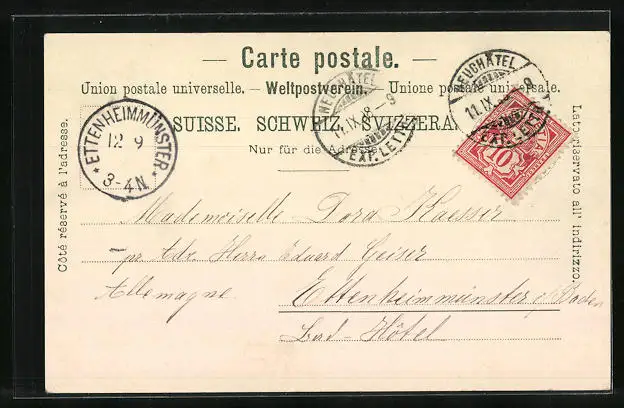 — Carte postale. —
Union postale universelle. — Weltpostverein. — Unione postale universale.
SUISSE. SCHWEIZ. SVIZZERA.
Nur für die Adresse.
Côté réservé à l'adresse.
Lato riservato all' indirizzo.
ETTENHEIMMÜNSTER
12 9
3-4N
NEUCHÂTEL
11.IX. –9
EXP. LETT.
NEUCHÂTEL
11.IX. –9
EXP. LETT.
10
Mademoiselle Dora Kaesser
pr. Adr. Herrn Eduard Geiser
Allemagne. Ettenheimmünster i/Baden
Bad-Hôtel